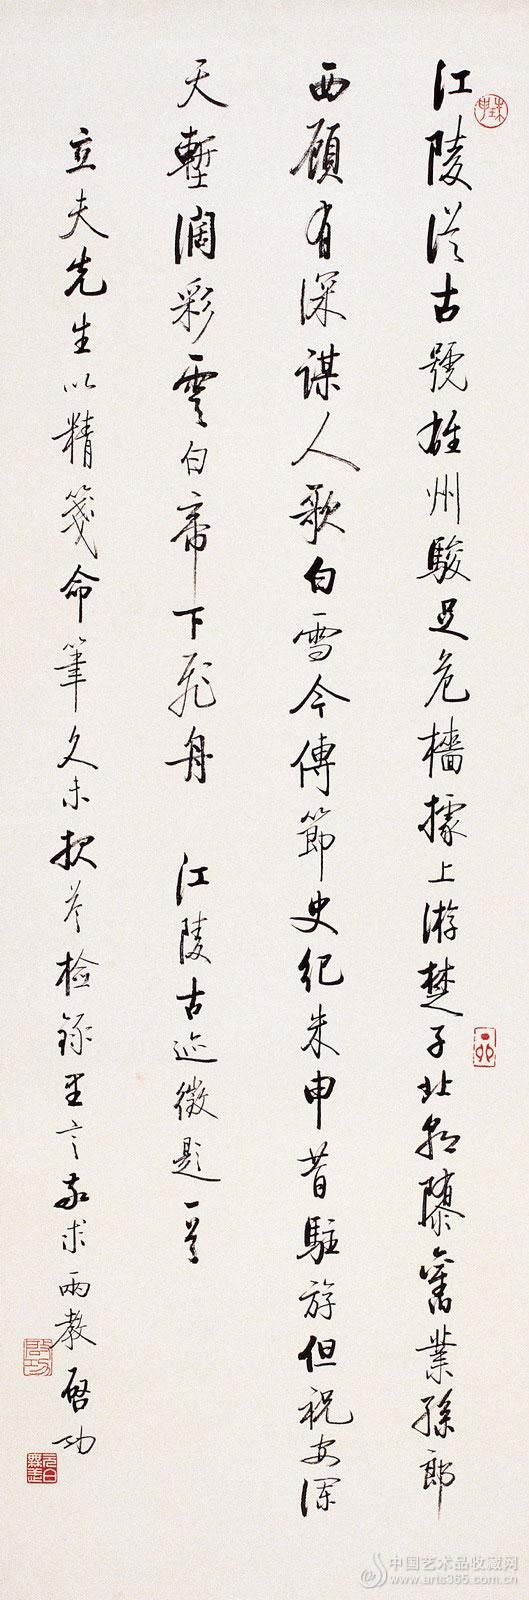 江陵從古號雄州駿足危檣據上游楚子北隳舊業孫郎
西顧有深謀人歌白雪今傳節史紀朱申昔駐斿但祝安瀾
天塹闊彩雲白帝下飛舟 江陵古迹徵題一首
立夫先生以精箋命筆久未報茲檢錄里言敬求兩教 啓功
啓功
中国艺术品收藏网
www.arts365.com.cn